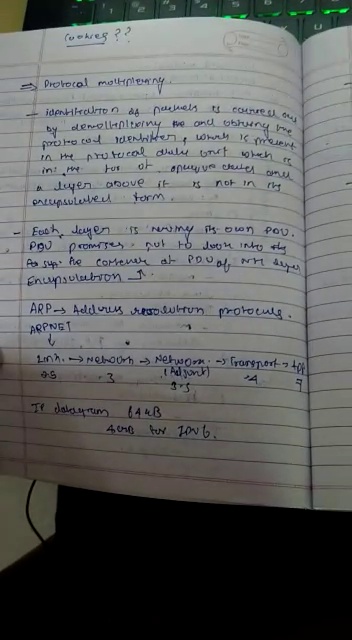 Cookies??
⇒ Protocol multiplexing.
- identification of packets is carried out
by demultiplexing the and obtaining the
protocol identifier, which is present
in the protocol data unit which is
in the for of and
a layer above it is not in its
encapsulated form.
- Each layer is having its own PDU.
PDU promises not to look into its
the content of PDU of Nth layer
Encapsulation
ARP → Address resolution protocols.
ARPNET
↓
Link → Network → Network → Transport → App
(Adjunct)
2.5 3 3.5 4 7
IP datagram 64 kB
4 GB for IPv6.